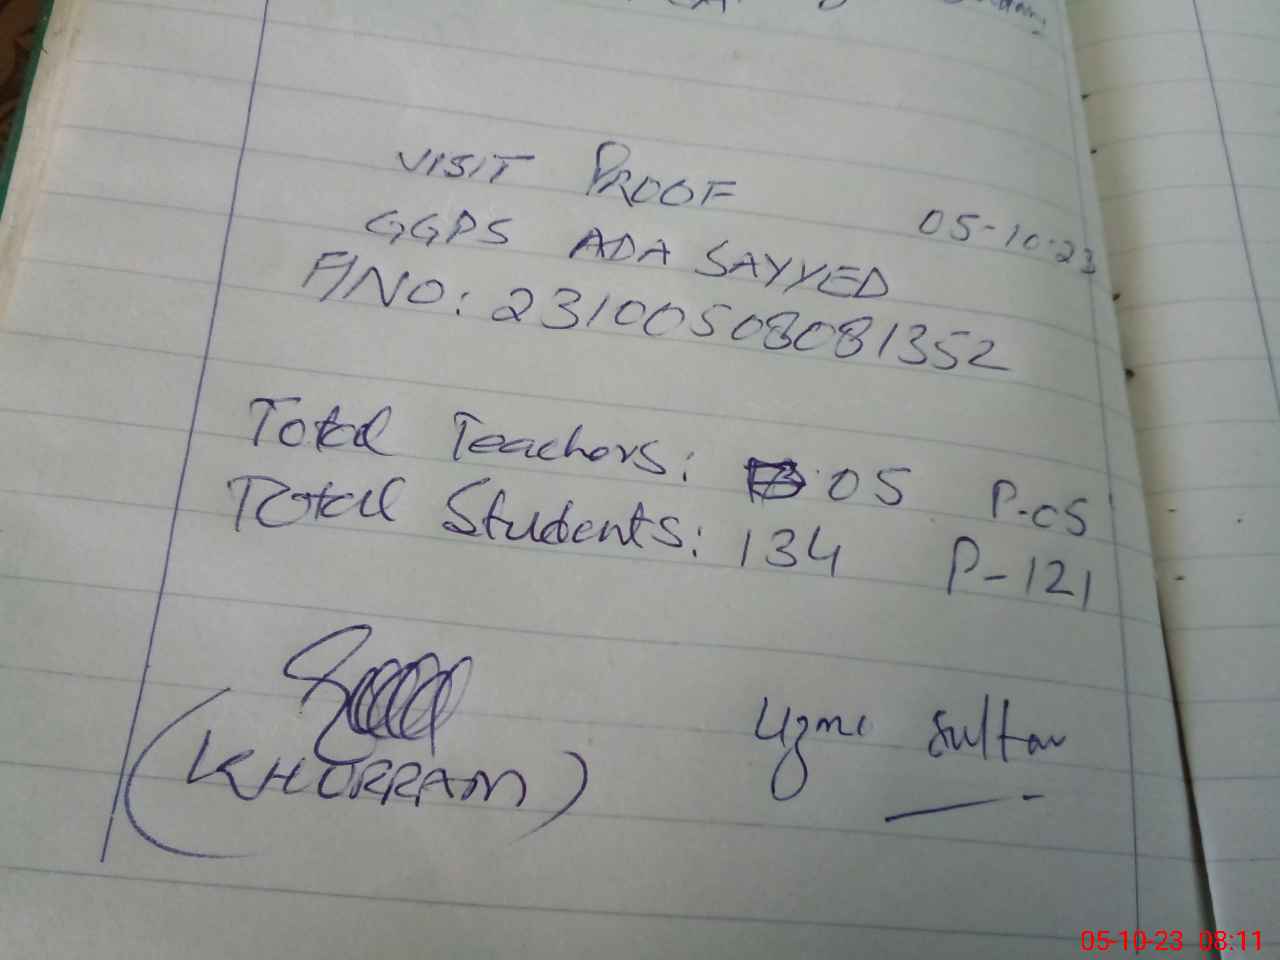 VISIT PROOF
05-10-23
GGPS ADA SAYYED
F/NO: 23100508081352
Total Teachers: 05 P-05
Total Students: 134 P-121
(KHURRAM)
Uzma Sultan
05-10-23 08:11